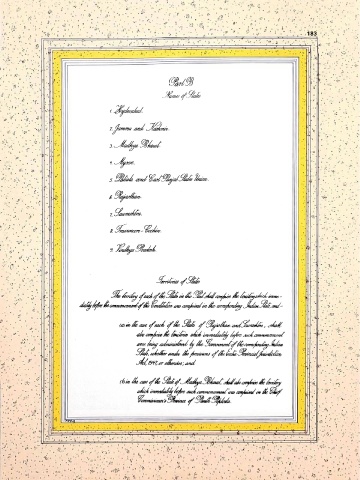 183
Part B
Names of States
1. Hyderabad.
2. Jammu and Kashmir.
3. Madhya Bharat.
4. Mysore.
5. Patiala and East Punjab States Union.
6. Rajasthan.
7. Saurashtra.
8. Travancore-Cochin.
9. Vindhya Pradesh.
Territories of States
The territory of each of the States in this Part shall comprise the territory which imme-
diately before the commencement of this Constitution was comprised in the corresponding Indian State, and—
(a) in the case of each of the States of Rajasthan and Saurashtra, shall
also comprise the territories which immediately before such commencement
were being administered by the Government of the corresponding Indian
State, whether under the provisions of the Extra-Provincial Jurisdiction
Act, 1947, or otherwise; and
(b) in the case of the State of Madhya Bharat, shall also comprise the territory
which immediately before such commencement was comprised in the Chief
Commissioner's Province of Panth Piploda.